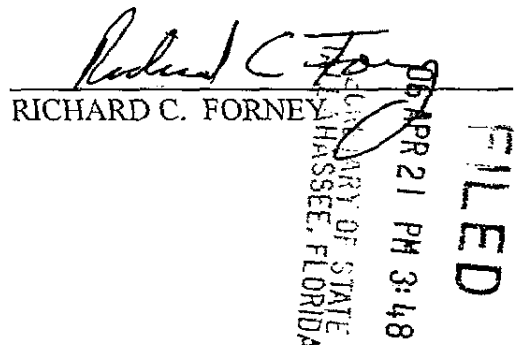 Richard C Forney
RICHARD C. FORNEY
FILED
06 APR 21 PM 3:48
SECRETARY OF STATE
TALLAHASSEE, FLORIDA